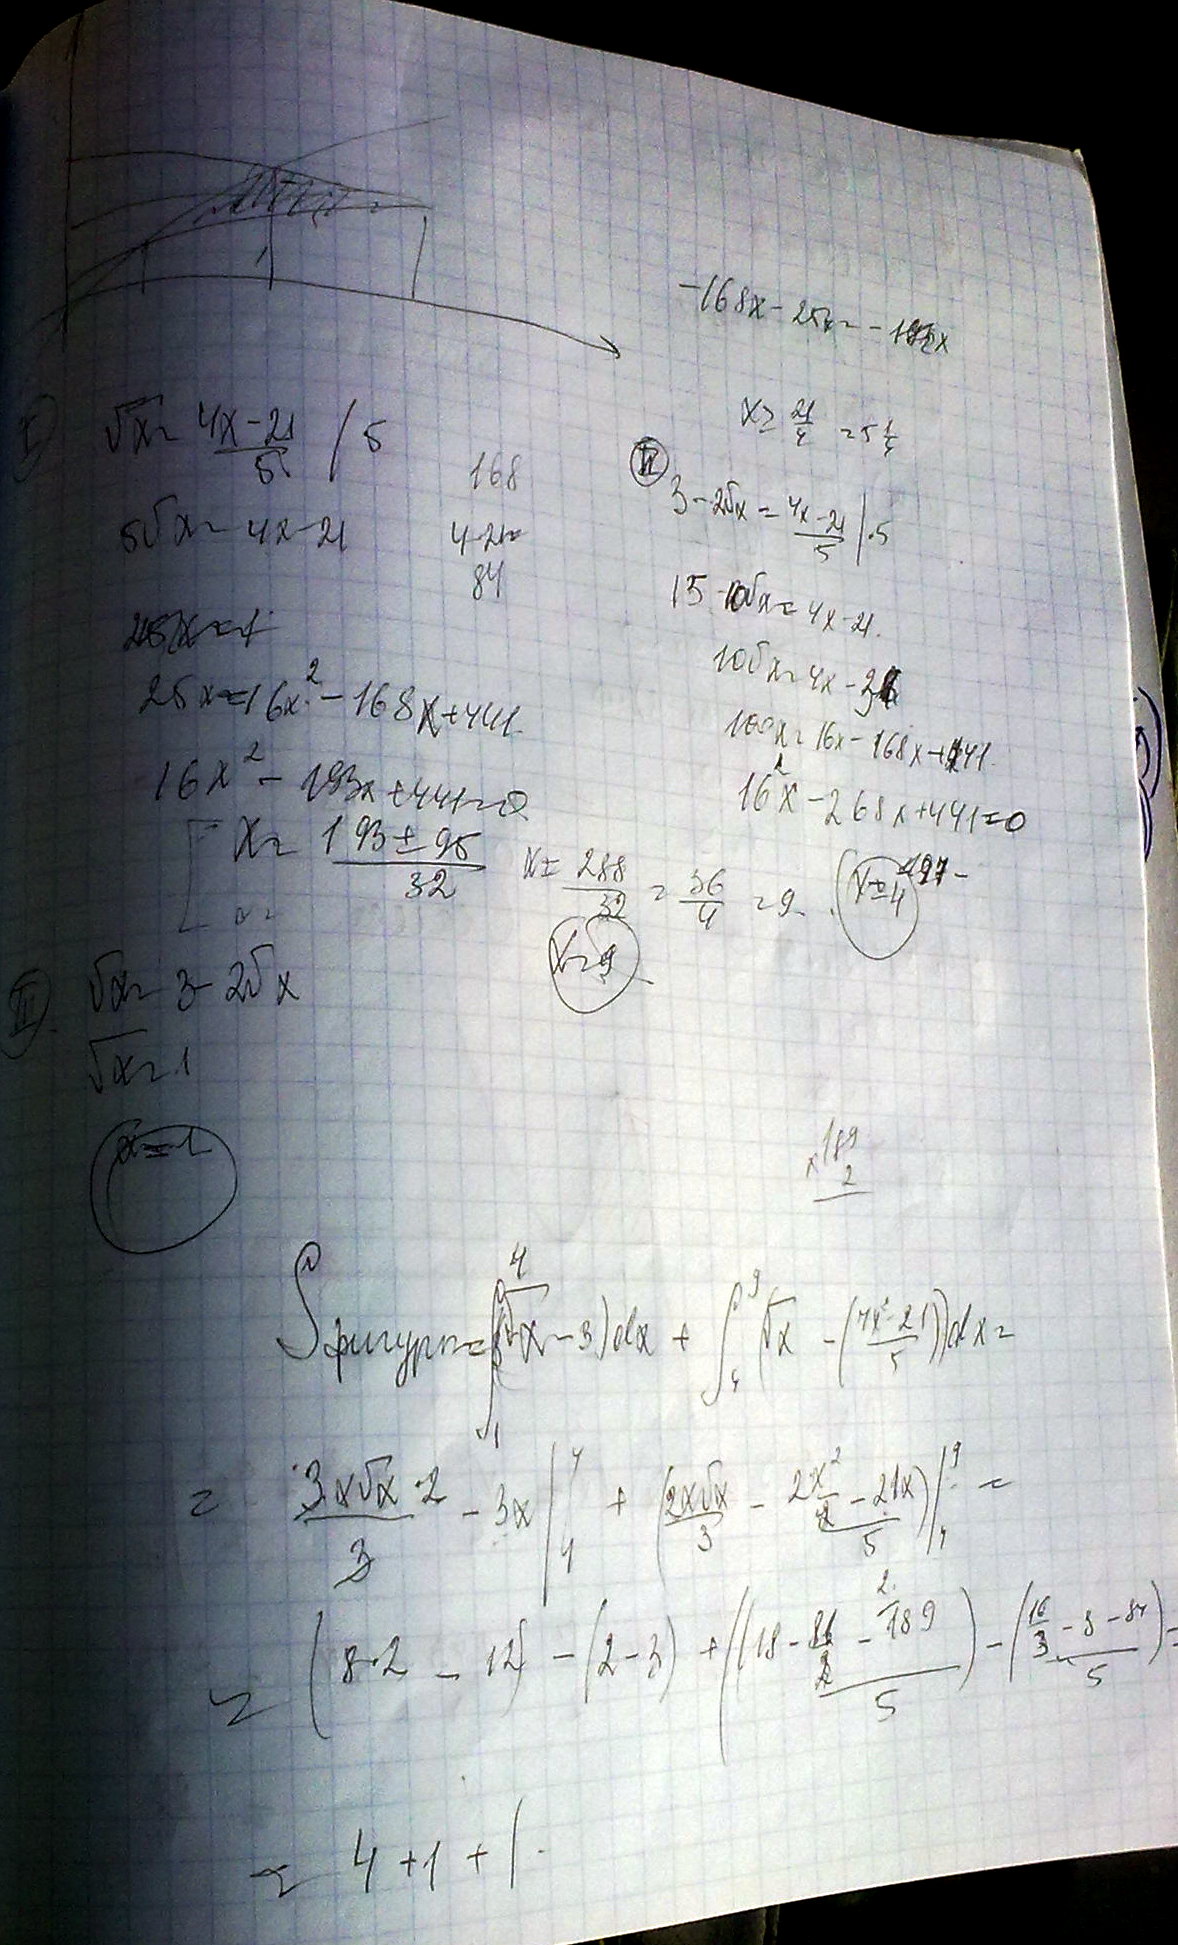 -168x - 25x = -193x
x ≥ 21/4 = 5 1/4
I) √x = (4x-21)/5 / 5
5√x = 4x-21
168
4·21=
84
25x = 16x² - 168x + 441
16x² - 193x + 441 = 0
x = (193 ± 95)/32
x = 288/32 = 36/4 = 9
x = 9
x = 4
II) 3 - 2√x = (4x-21)/5 | ·5
15 - 10√x = 4x-21.
10√x = 4x - 36
100x = 16x - 168x + 441
16²x - 268x + 441 = 0
III. √x = 3 - 2√x
√x = 1
x = 1
×189
2
Sфигуры = ∫₁⁴ (√x - 3)dx + ∫₄⁹ (√x - ((4x²-21)/5))dx =
= 3x√x·2/3 - 3x |₁⁴ + (2x√x/3 - (2x² - 21x)/5) |₄⁹ =
= (8·2 - 12) - (2-3) + ((18 - (81/2 - 189)/5) - (16/3 - (8 - 84)/5) =
= 4 + 1 + (